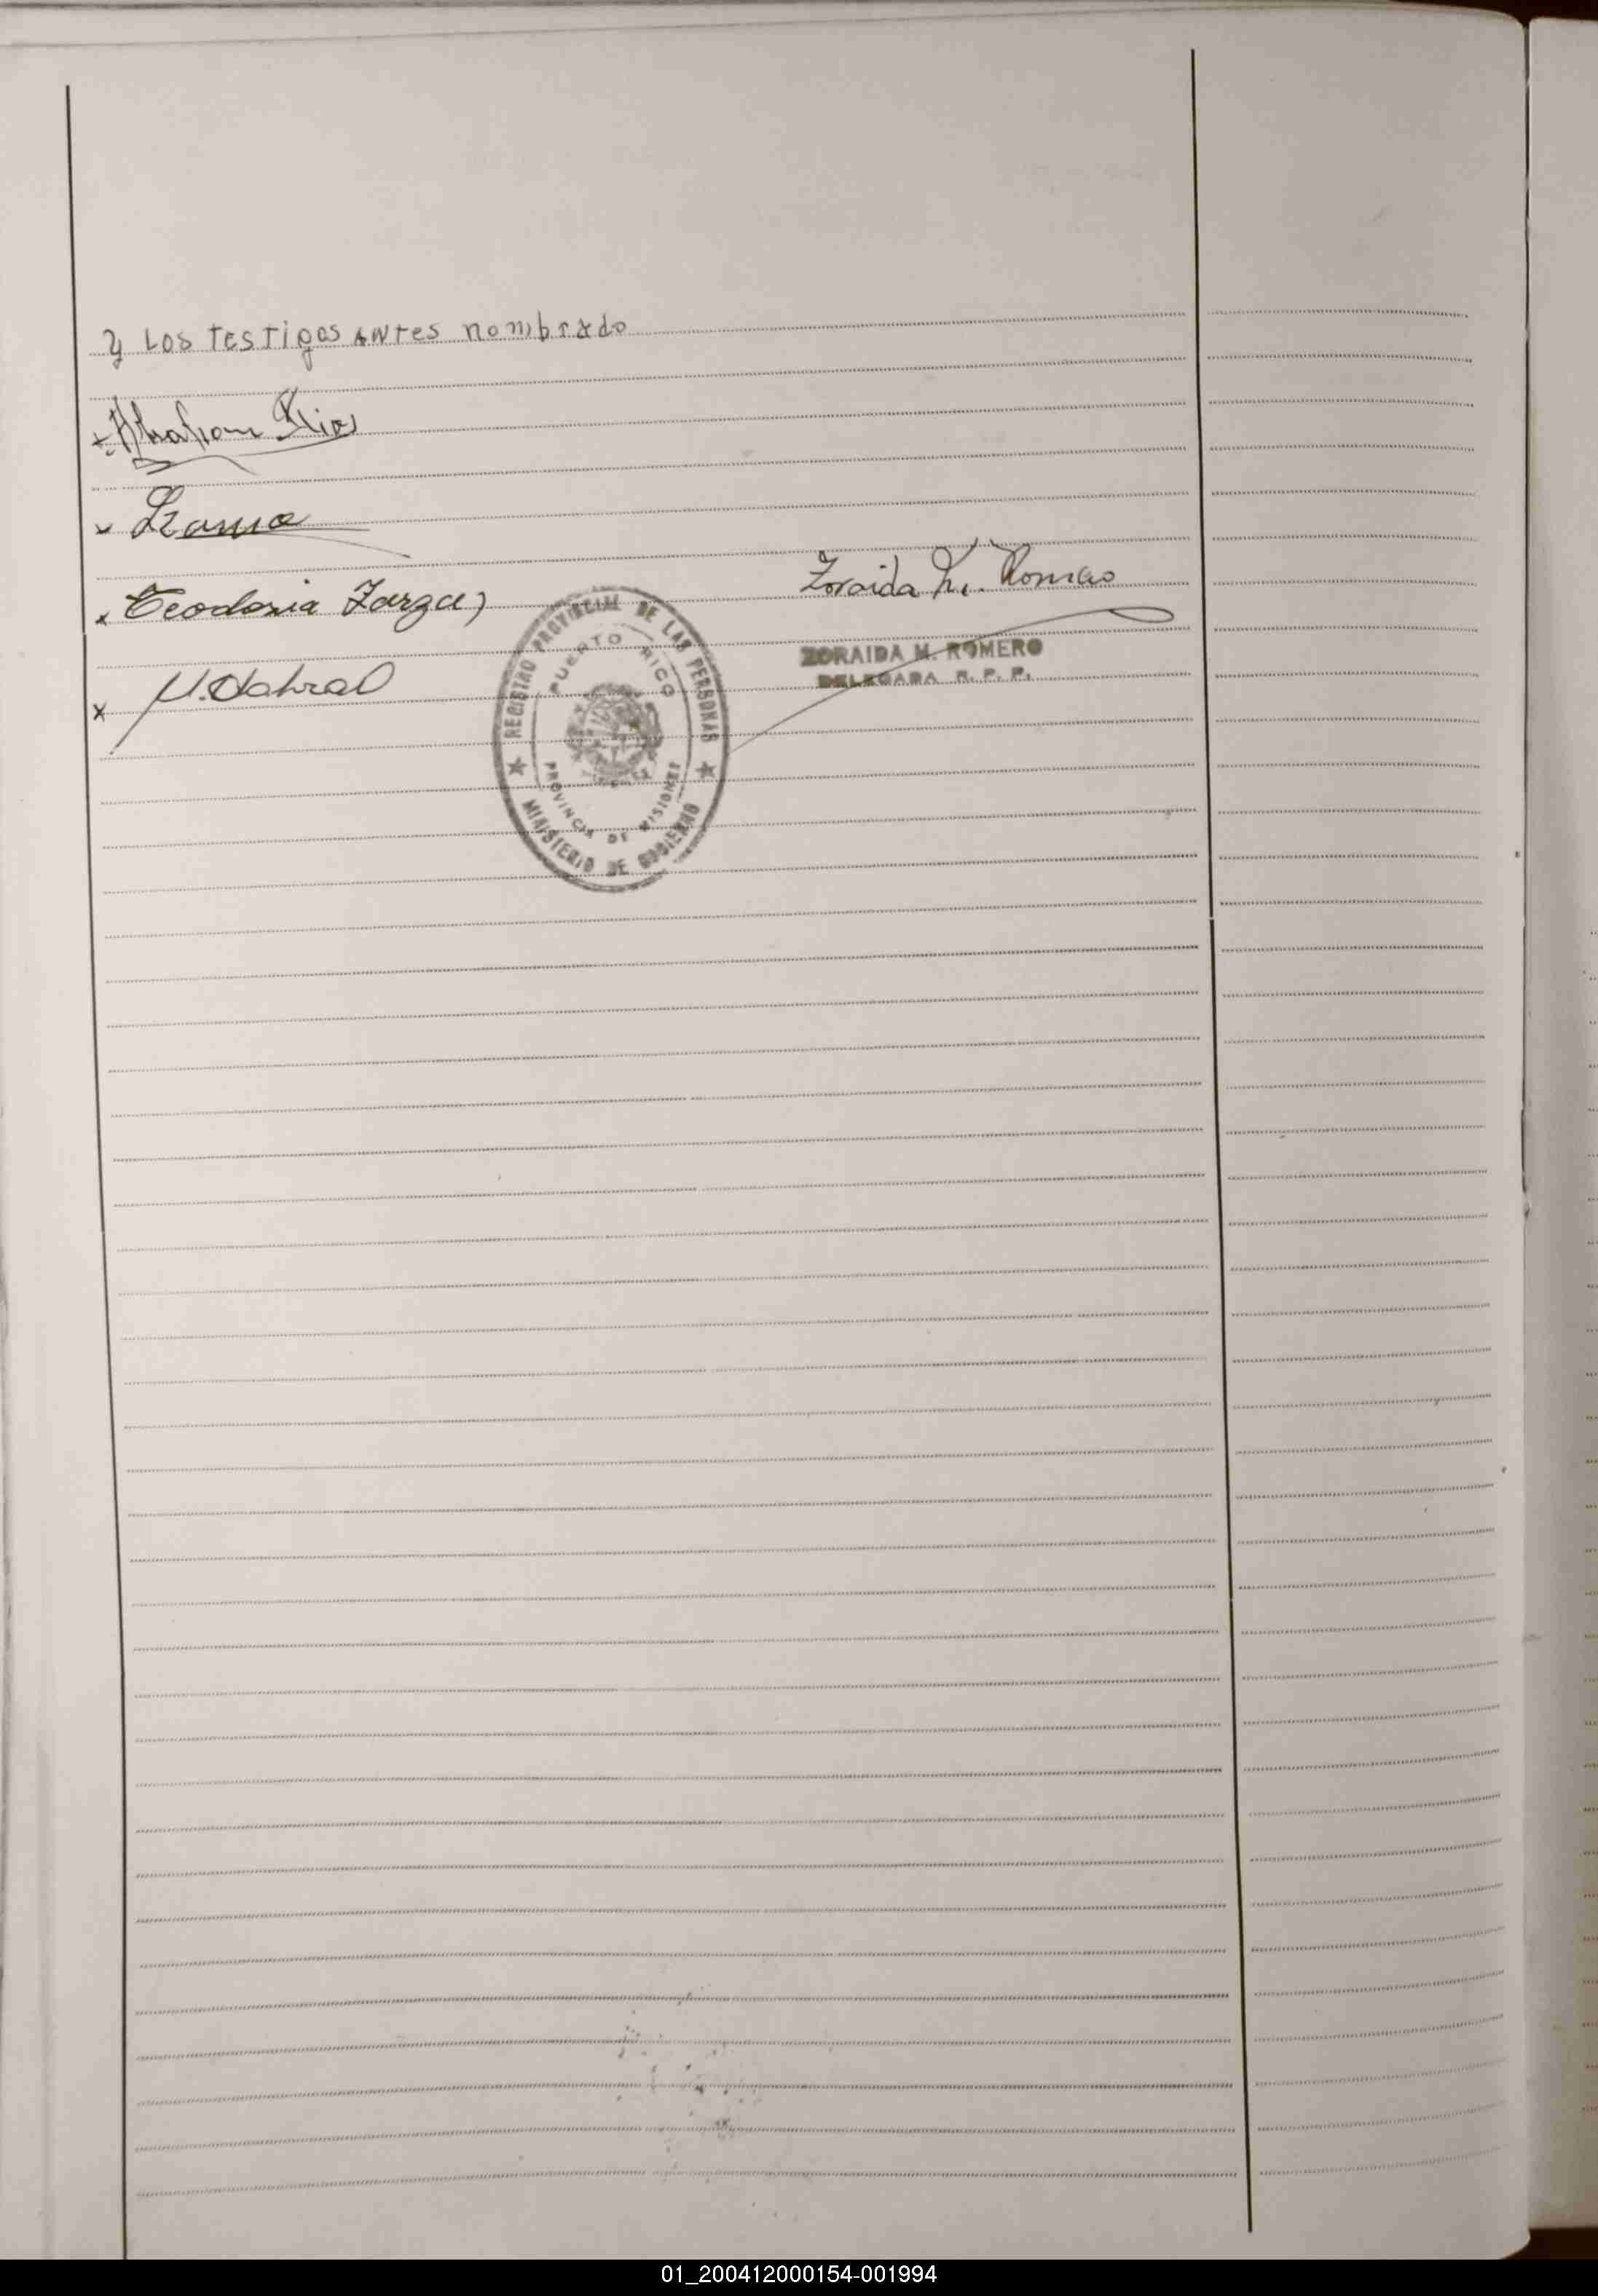 y Los testigos antes nombrado
Abraham Rios
Teodosia Zarza
Zoraida M. Romero
ZORAIDA M. ROMERO
DELEGADA R. P. P.
REGISTRO PROVINCIAL DE LAS PERSONAS
PUERTO RICO
PROVINCIA DE MISIONES
MINISTERIO DE GOBIERNO
01_200412000154-001994